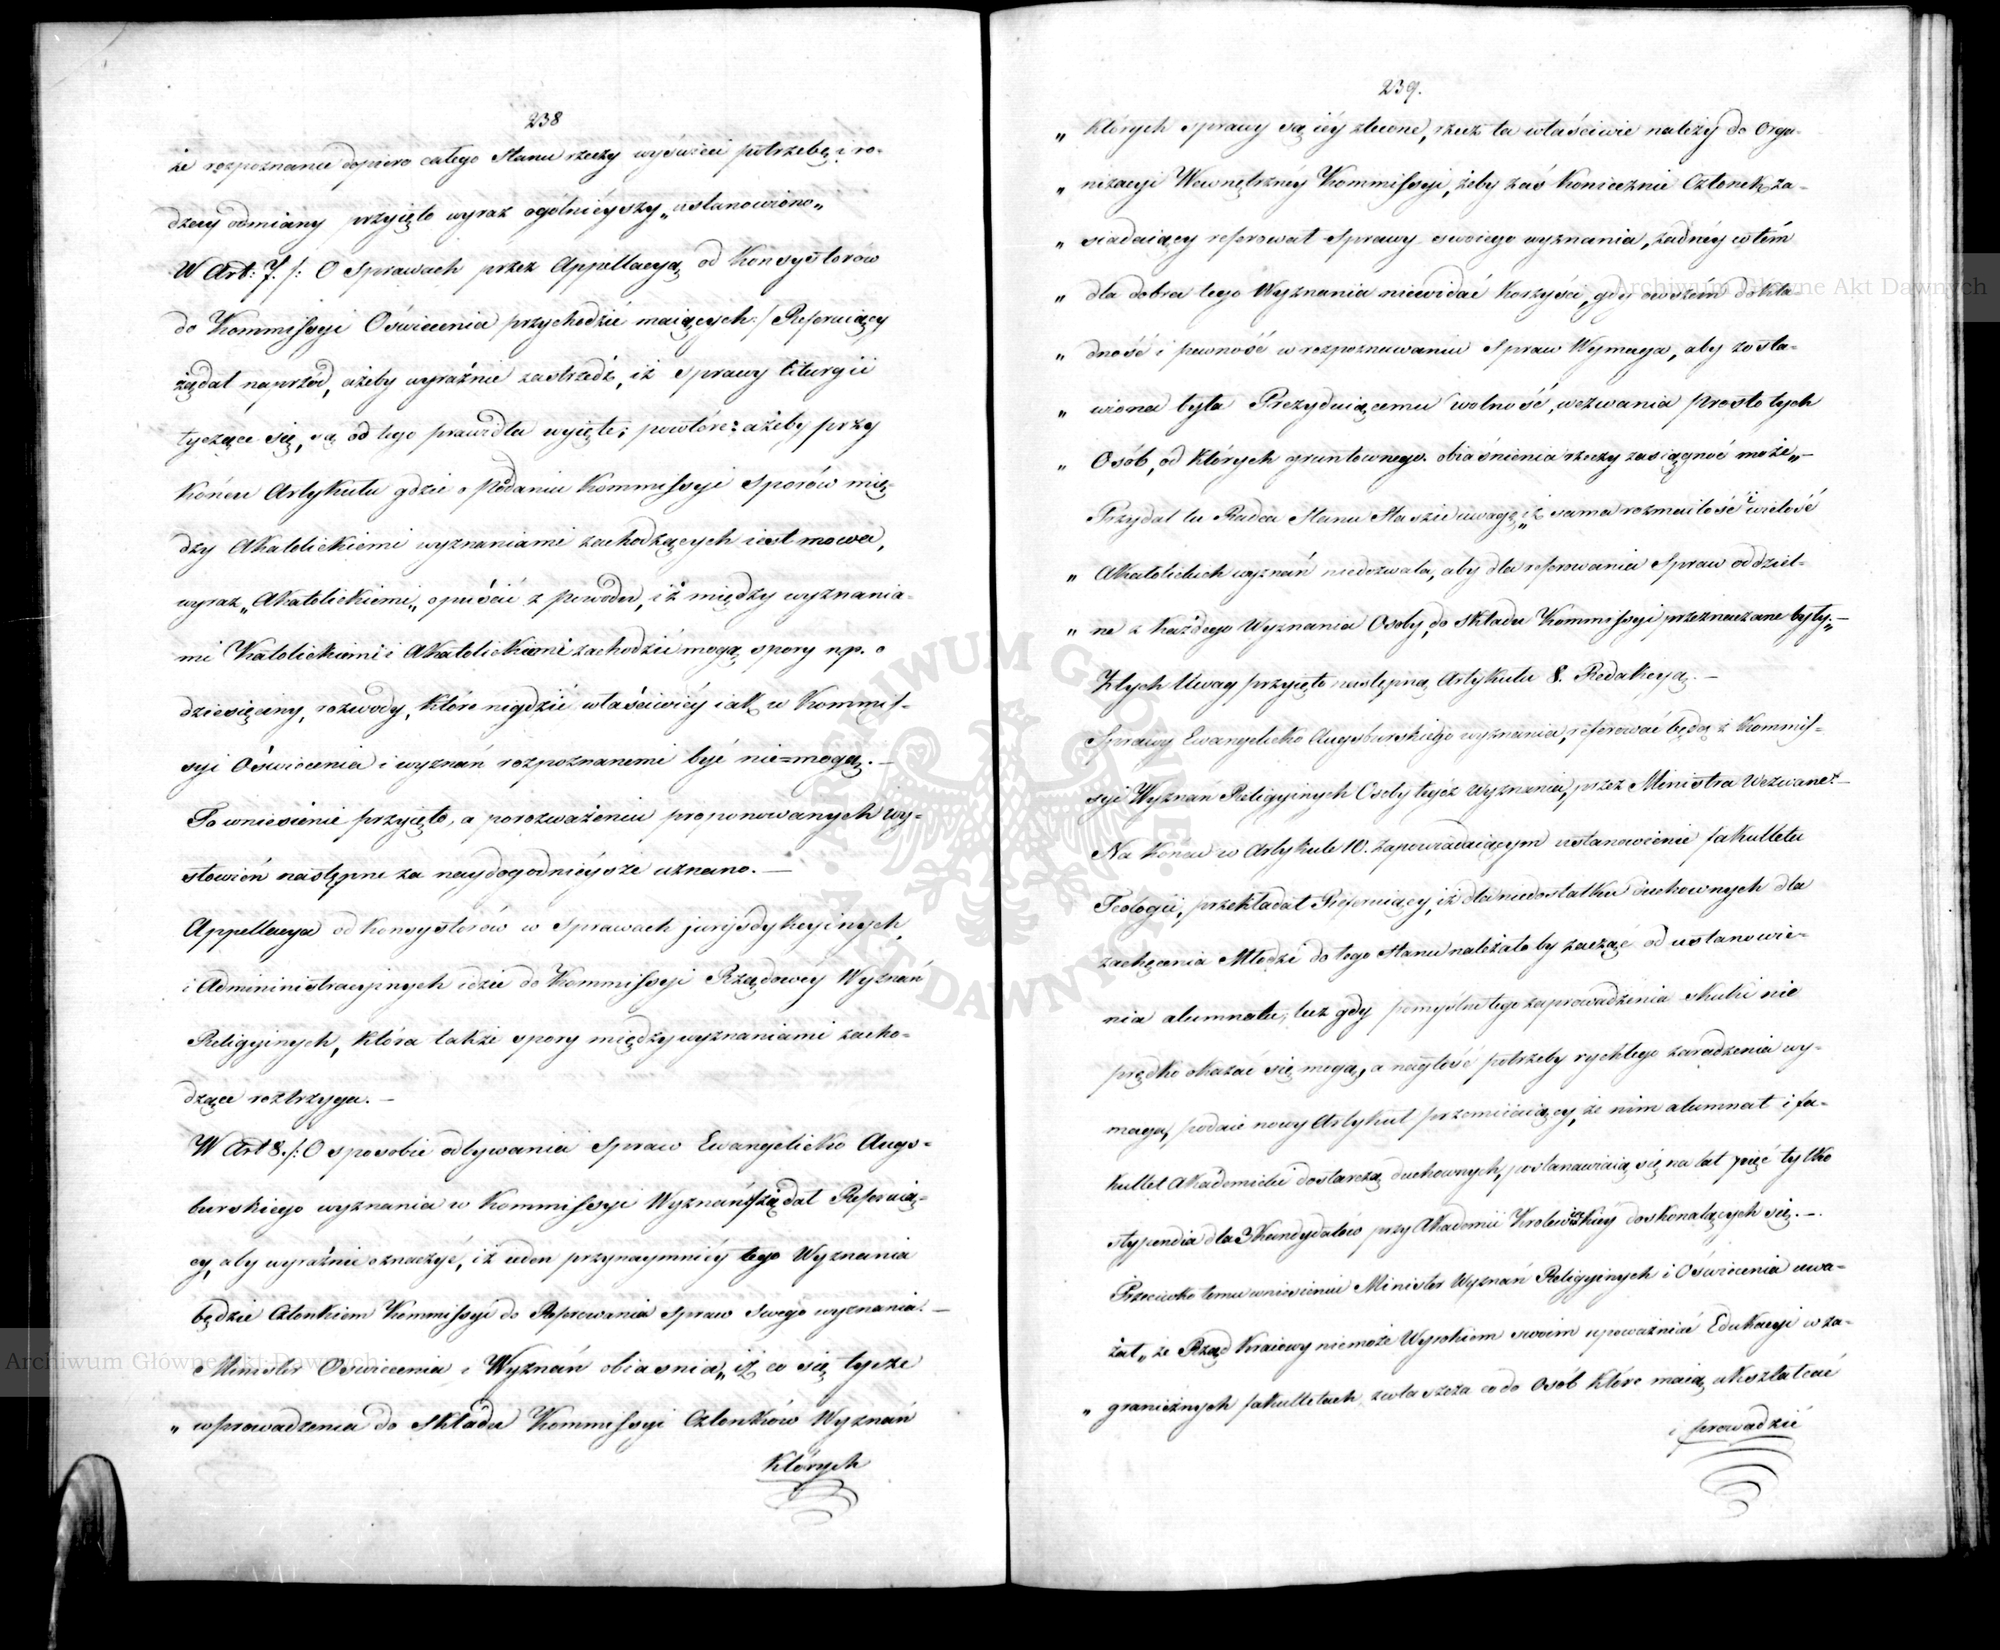 238
że rozpoznanie dopiero całego Stanu rzeczy wyświeci potrzebę i ro-
dzay odmiany przyięto wyraz ogólnieyszy „ustanowiono„
W Art: 7. /: O Sprawach przez Appellacyą od Konsystorów
do Kommissyi Oświecenia przychodzić maiących :/ Referuiący
żądał naprzód, ażeby wyraźnie zastrzedz, iż Sprawy Liturgii
tyczące się, są od tego prawidła wyięte; powtóre: ażeby przy
końcu Artykułu gdzie o poddaniu Kommissyi Sporów mię-
dzy Akatolickiemi wyznaniami zachodzących iest mowa,
wyraz „Akatolickiemi„ opuścić z powodu, iż między wyznania-
mi Katolickiemi i Akatolickiemi zachodzić mogą spory np. o
dziesięciny, rozwody, które nigdzie właściwiéy iak w Kommis-
syi Oświecenia i wyznań rozpoznanemi być nie=mogą. —
To wniesienie przyięto, a po rozważeniu proponowanych wy-
słowień następne za naydogodnieysze uznano. —
Appellacya od Konsystorów w Sprawach jurysdykcyinych
i Admininistracyinych idzie do Kommissyi Rządowéy Wyznań
Religyinych, która także spory między wyznaniami zacho-
dzące roztrzyga. —
W Art 8. /: O sposobie odbywania Spraw Ewangelicko Augs-
burskiego wyznania w Kommissyi Wyznań :/ żądał Referuią-
cy, aby wyraźnie oznaczyć, iż ieden przynaymniéy tego Wyznania
będzie Członkiem Kommissyi do Referowania spraw swego wyznania. —
Minister Oświecenia i Wyznań obiaśnia, „iż co się tycze
„ wprowadzenia do składu Kommissyi Członków Wyznań
Których
239.
„ których sprawy są iéy zlecone, rzecz ta właściwie należy do Orga-
„ nizacyi Wewnętrznéy Kommissyi, żeby zaś koniecznie Członek za-
„ siadaiący referował Sprawy swoiego wyznania, żadnéy w tém
„ dla dobra tego Wyznania niewidać korzyści, gdy owszém dokła-
„ dność i pewność w rozpoznawaniu Spraw Wymaga, aby zosta-
„ wiona była Prezyduiącemu wolność, wezwania prosto tych
„ Osób, od których gruntownego obiaśnienia rzeczy zasiągnąć może„—
Przydał tu Radca Stanu Staszic uwagę „iż sama rozmaitość i wielość
„ Akatolickich wyznań niedozwala, aby dla referowania Spraw oddziel-
„ ne z każdego Wyznania Osoby, do składu Kommissyi przeznaczane były„—
Z tych Uwag przyięto następną Artykułu 8. Redakcyą. —
Sprawy Ewangelicko Augsburskiego wyznania, referować będą w Kommis-
syi Wyznań Religyinych Osoby tegoż Wyznania, przez Ministra Wezwane. —
Na końcu w Artykule 10. zapowiadaiącym ustanowienie fakultetu
Teologii, przekładał Referuiący, iż dla niedostatku duchownych dla
zachęcenia Młodzi do tego Stanu należałoby zacząć od ustanowie-
nia alumnatu, lecz gdy pomyślne tego zaprowadzenia skutki nie
prędko okazać się mogą, a nagłość potrzeby rychłego zaradzenia wy-
maga, podaie nowy Artykuł przemiiaiący, że nim alumnat i fa-
kultet Akademicki dostarczą duchownych, postanawiaią się na lat pięć tylko
stypendia dla 3 Kandydatów przy Akademii Krolewieckiey doskonalących się. —
Przeciwko temu wniesieniu Minister Wyznań Religyinych i Oświecenia uwa-
żał „że Rząd Kraiowy niemoże Wyrokiem swoim upoważniać Edukacyi w za-
„ granicznych fakultetach zwłaszcza co do Osób które maią ukształcać
i prowadzić
Archiwum Główne Akt Dawnych
Archiwum Główne Akt Dawnych
ARCHIWUM GŁÓWNE AKT DAWNYCH